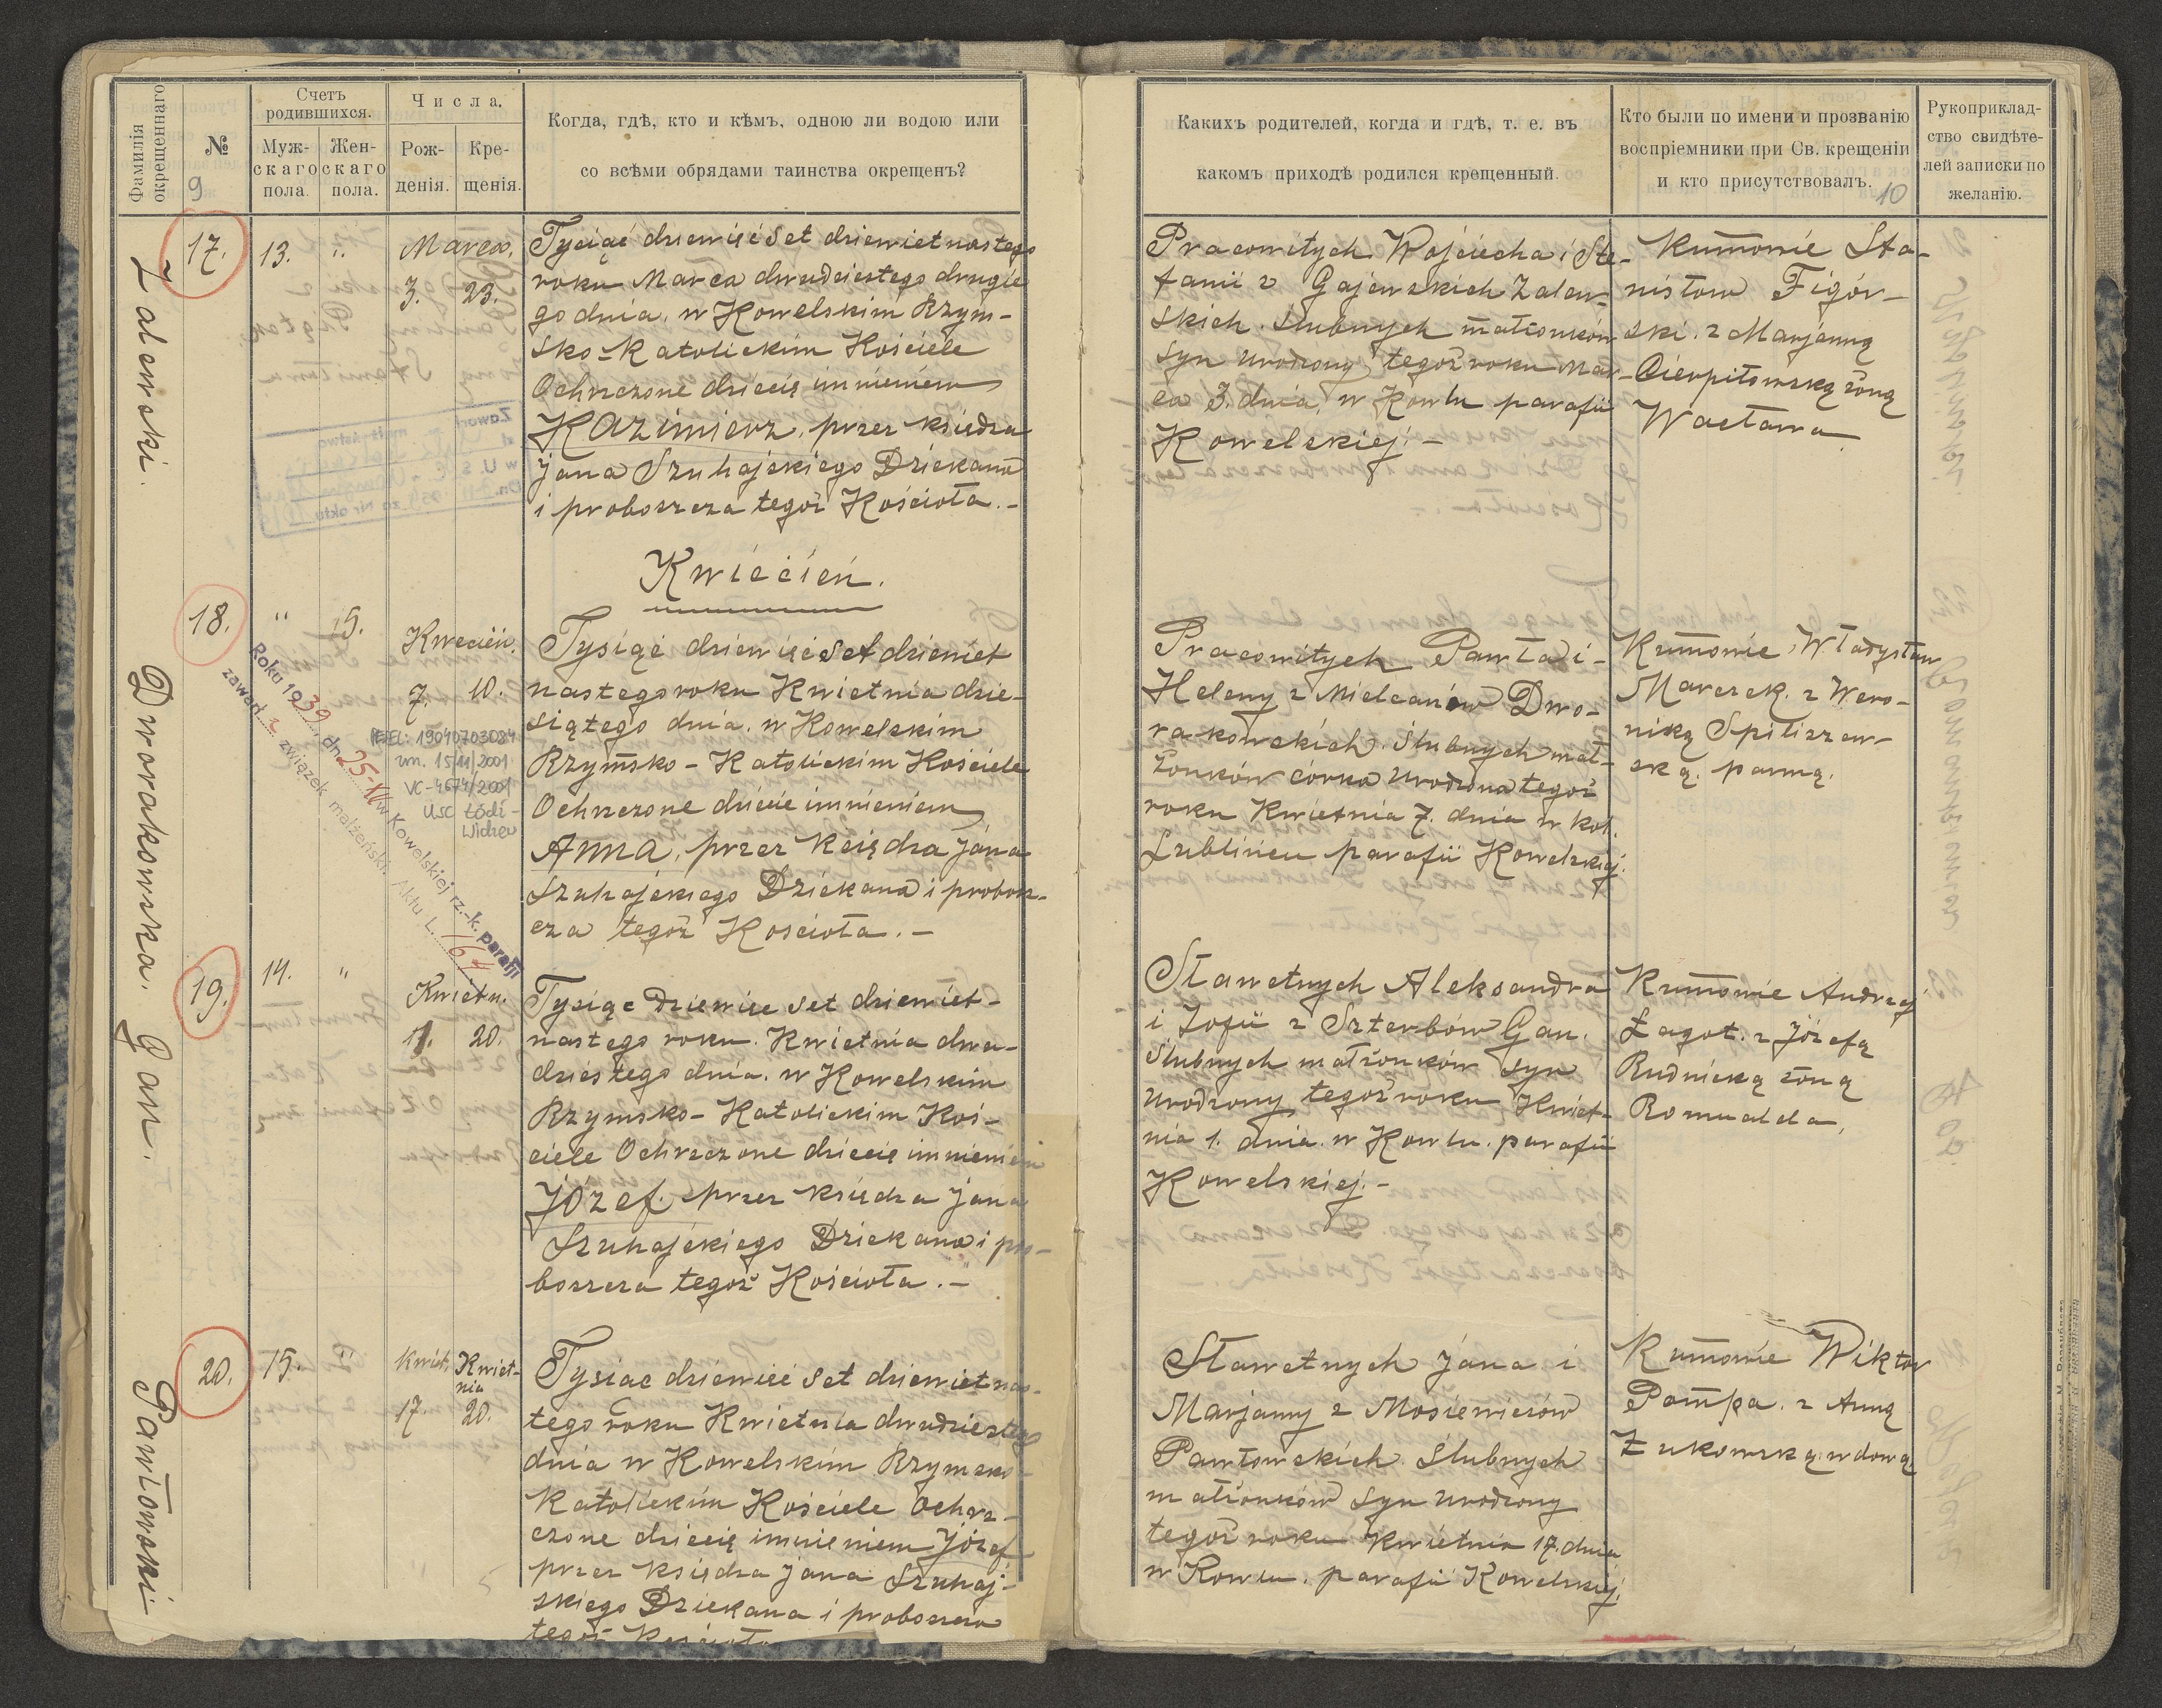 Фамилія окрещеннаго
№
9
Счетъ родившихся.
Муж-
скаго
пола.
Жен-
скаго
пола.
Числа.
Рож-
денія.
Кре-
щенія.
Когда, гдѣ, кто и кѣмъ, одною ли водою или
со всѣми обрядами таинства окрещенъ?
Zalewski.
17.
13.
"
Marca.
3.
23.
Tysiąć dziewięćset dziewietnastego
roku Marca dwudziestego drugie
go dnia. w Kowelskim Rzym-
sko-Katolickim Kościele
Ochrzczone dziecię imnieniem
Kazimierz, przez księdza
jana Szuhajskiego Dziekana
i proboszcza tegoż Kościoła.-
Kwiećień.
Dworakowska.
18.
"
5.
Kwiecień.
7.
10.
Roku 1939 dn 25-XII w Kowelskiej rz.-k. parafji
zawarł z związek małżeński. Aktu L. 164
PESEL: 19040703084
zm. 15/11/2001
VC-4674/2001
USC Łódź-
Widzew
Tysiąć dziewięćset dziewiet
nastego roku Kwietnia dzie-
siątego dnia. w Kowelskim
Rzymsko-Katolickim Kościele
Ochrzczone dziecie imnieniem
Anna, przez księdza jana
Szuhajskiego Dziekana i probosz-
cza tegoż Kościoła.-
Gan.
19.
14.
"
Kwietn.
1.
20.
Tysiąc Dziewięc set dziewiet-
nastego roku. Kwietnia dwu-
dziestego dnia. w Kowelskim
Rzymsko-Katolickim Koś-
ciele Ochrzczone dziecię imnieniem
józef. przez księdza jana
Szuhajskiego Dziekana i pro-
boszcza tegoż Kościoła.-
Pawłowski.
20.
15.
"
Kwiet.
17.
Kwiet-
nia
20.
Tysiac dziewięć set dziewietnas-
tego roku Kwietnia dwudziestego
dnia w Kowelskim Rzymsko-
Katolickim Kościele Ochrz-
czone dziecię imnieniem józef
przez księdza jana Szuhaj-
skiego Dziekana i proboszcza
tegoż Kościoła
Какихъ родителей, когда и гдѣ, т. е. въ
какомъ приходѣ родился крещенный.
Кто были по имени и прозванію
воспріемники при Св. крещеніи
и кто присутствовалъ.
10
Рукоприклад-
ство свидѣте-
лей записки по
желанію.
Pracowitych Wojciecha i Ste-
fanii z Gajewskich Zalew-
skich. ślubnych małżonków
syn urodzony tegoż roku Mar-
ca 3. dnia, w Kowlu parafii
Kowelskiej.-
Kumowie Sta-
nisław Figór-
ski. z Marjanną
Cierpiłowską żoną
Wacława
Pracowitych Pawła i-
Heleny z Mielcaniów Dwo-
rakowskich. ślubnych mał-
żonków córka urodzona tegoż
roku Kwietnia 7. dnia w kol.
Lublinieu parafii Kowelskiej.
Kumowie, Władysław
Marczek. z Wero-
niką Spiliszew-
ską. panną.
Sławetnych Aleksandra
i Zofii z Szterbów Gan.
ślubnych małżonków syn
urodzony tegoż roku, Kwiet-
nia 1. dnia. w Kowlu. parafii
Kowelskiej.-
Kumowie Andrzej
Łagot. z józefą
Rudnicką żoną
Romualda.
Sławetnych jana i
Marjanny z Mosiewiczów
Pawłowskich ślubnych
małżonków syn urodzony
tegoż roku Kwietnia 17. dnia
w Kowlu. parafii Kowelskiej.
Kumowie Wiktor
Pompa. z Anną
Żukowską wdową